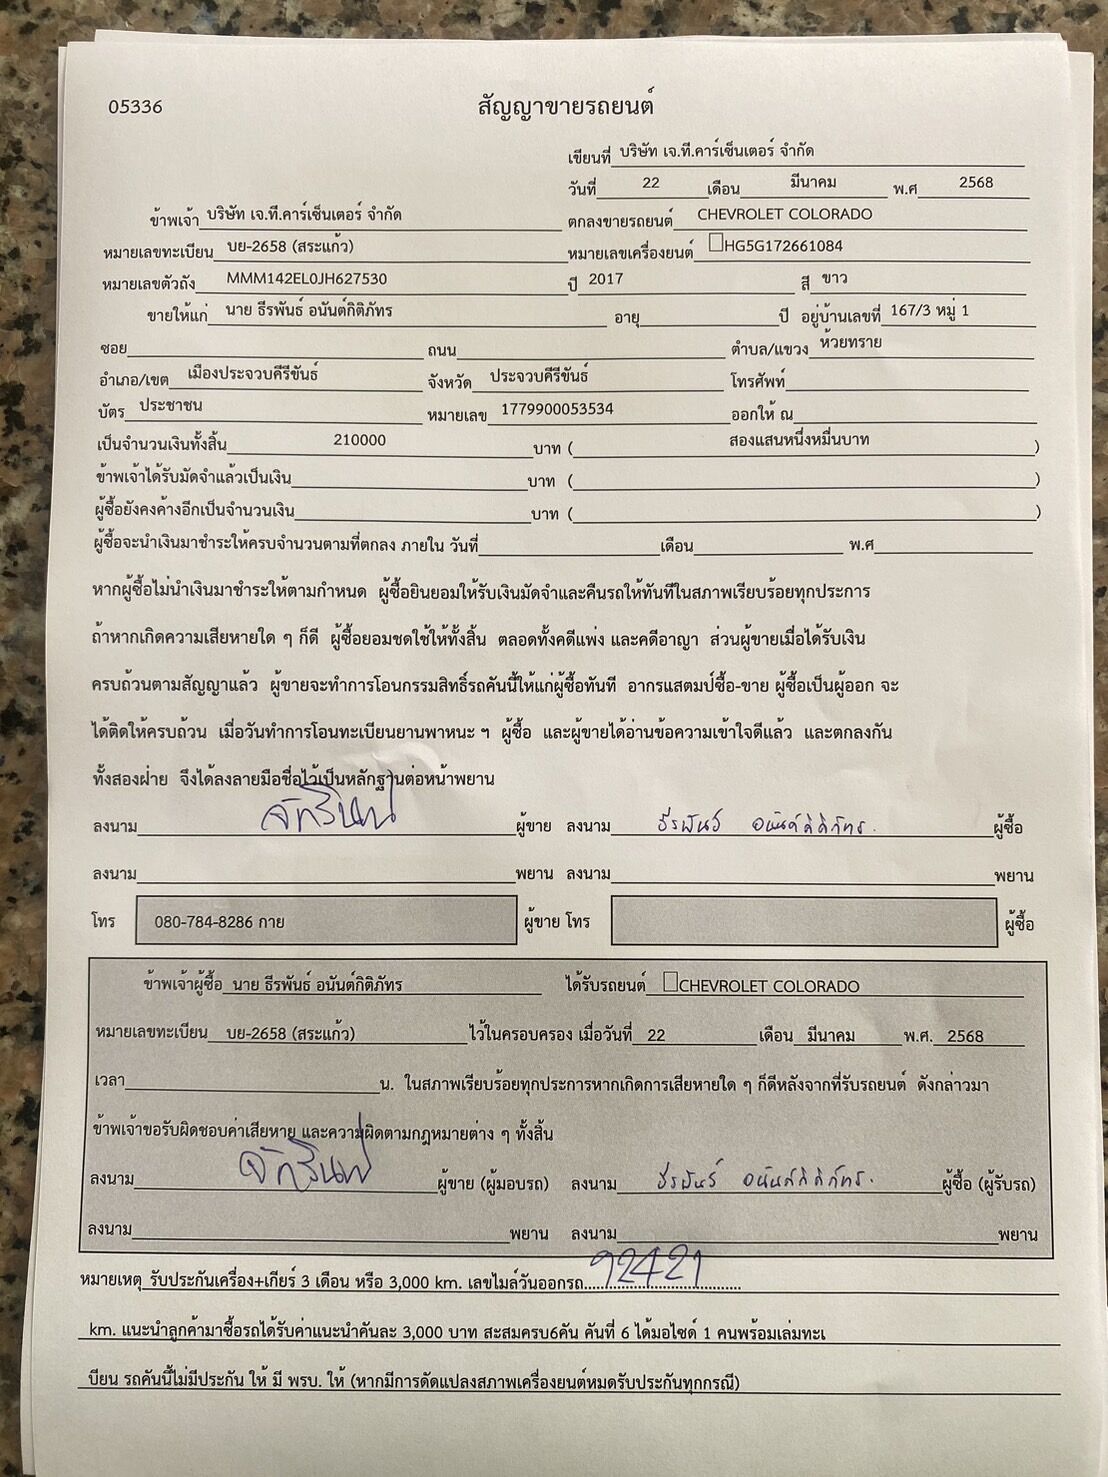 05336
สัญญาขายรถยนต์
เขียนที่ บริษัท เจ.ที.คาร์เซ็นเตอร์ จำกัด
วันที่ 22 เดือน มีนาคม พ.ศ 2568
ข้าพเจ้า บริษัท เจ.ที.คาร์เซ็นเตอร์ จำกัด ตกลงขายรถยนต์ CHEVROLET COLORADO
หมายเลขทะเบียน บย-2658 (สระแก้ว) หมายเลขเครื่องยนต์ HG5G172661084
หมายเลขตัวถัง MMM142EL0JH627530 ปี 2017 สี ขาว
ขายให้แก่ นาย ธีรพันธ์ อนันต์กิติภัทร อายุ ปี อยู่บ้านเลขที่ 167/3 หมู่ 1
ซอย ถนน ตำบล/แขวง ห้วยทราย
อำเภอ/เขต เมืองประจวบคีรีขันธ์ จังหวัด ประจวบคีรีขันธ์ โทรศัพท์
บัตร ประชาชน หมายเลข 1779900053534 ออกให้ ณ
เป็นจำนวนเงินทั้งสิ้น 210000 บาท ( สองแสนหนึ่งหมื่นบาท )
ข้าพเจ้าได้รับมัดจำแล้วเป็นเงิน บาท ( )
ผู้ซื้อยังคงค้างอีกเป็นจำนวนเงิน บาท ( )
ผู้ซื้อจะนำเงินมาชำระให้ครบจำนวนตามที่ตกลง ภายใน วันที่ เดือน พ.ศ
หากผู้ซื้อไม่นำเงินมาชำระให้ตามกำหนด ผู้ซื้อยินยอมให้รับเงินมัดจำและคืนรถให้ทันทีในสภาพเรียบร้อยทุกประการ
ถ้าหากเกิดความเสียหายใด ๆ ก็ดี ผู้ซื้อยอมชดใช้ให้ทั้งสิ้น ตลอดทั้งคดีแพ่ง และคดีอาญา ส่วนผู้ขายเมื่อได้รับเงิน
ครบถ้วนตามสัญญาแล้ว ผู้ขายจะทำการโอนกรรมสิทธิ์รถคันนี้ให้แก่ผู้ซื้อทันที อากรแสตมป์ซื้อ-ขาย ผู้ซื้อเป็นผู้ออก จะ
ได้ติดให้ครบถ้วน เมื่อวันทำการโอนทะเบียนยานพาหนะ ฯ ผู้ซื้อ และผู้ขายได้อ่านข้อความเข้าใจดีแล้ว และตกลงกัน
ทั้งสองฝ่าย จึงได้ลงลายมือชื่อไว้เป็นหลักฐานต่อหน้าพยาน
ลงนาม ผู้ขาย ลงนาม ธีรพันธ์ อนันต์กิติภัทร ผู้ซื้อ
ลงนาม พยาน ลงนาม พยาน
โทร 080-784-8286 กาย ผู้ขาย โทร ผู้ซื้อ
ข้าพเจ้าผู้ซื้อ นาย ธีรพันธ์ อนันต์กิติภัทร ได้รับรถยนต์ CHEVROLET COLORADO
หมายเลขทะเบียน บย-2658 (สระแก้ว) ไว้ในครอบครอง เมื่อวันที่ 22 เดือน มีนาคม พ.ศ. 2568
เวลา น. ในสภาพเรียบร้อยทุกประการหากเกิดการเสียหายใด ๆ ก็ดีหลังจากที่รับรถยนต์ ดังกล่าวมา
ข้าพเจ้าขอรับผิดชอบค่าเสียหาย และความผิดตามกฎหมายต่าง ๆ ทั้งสิ้น
ลงนาม ผู้ขาย (ผู้มอบรถ) ลงนาม ธีรพันธ์ อนันต์กิติภัทร ผู้ซื้อ (ผู้รับรถ)
ลงนาม พยาน ลงนาม พยาน
หมายเหตุ รับประกันเครื่อง+เกียร์ 3 เดือน หรือ 3,000 km. เลขไมล์วันออกรถ 92421
km. แนะนำลูกค้ามาซื้อรถได้รับค่าแนะนำคันละ 3,000 บาท สะสมครบ6คัน คันที่ 6 ได้มอไซด์ 1 คนพร้อมเล่มทะเ
บียน รถคันนี้ไม่มีประกัน ให้ มี พรบ. ให้ (หากมีการดัดแปลงสภาพเครื่องยนต์หมดรับประกันทุกกรณี)